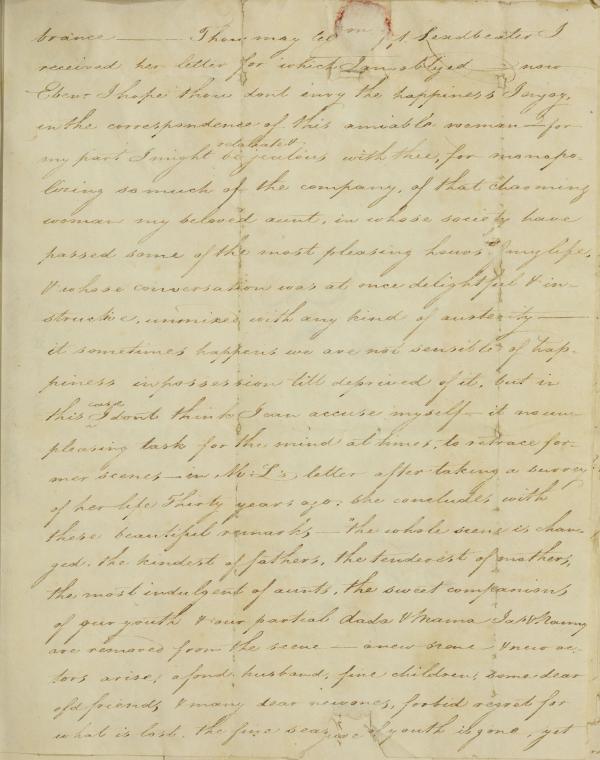 brance —— Thou may tell M Leadbeater I
received her letter for which I am obliged — now
Eben.r I hope thou dont envy the happiness I enjoy,
in the correspondence of this amiable woman — for
my part I might be jealous with thee, for monopo-
lizing so much of the company, of that charming
woman my beloved aunt, in whose society have
passed some of the most pleasing hours of my life,
& whose conversation was at once delightful & in-
structive, unmixed with any kind of austerity —
it sometimes happens we are not sensible of hap-
piness in possession till deprived of it, but in
this case I dont think I can accuse myself — it no un-
pleasing task for the mind at times, to retrace for-
mer scenes — in M: L's letter after taking a survey
of her life Thirty years ago, she concludes with
these beautiful remarks — "the whole scene is chan-
ged, the kindest of fathers, the tenderest of mothers,
the most indulgent of aunts, the sweet companions
of our youth & our partial dada & mama Jas & Nanny
are removed from the scene — a new scene & new ac-
tors arise, a fond husband, fine children, some dear
old friends & many dear new ones, forbid regret for
what is lost. the fine season of youth is gone, yet